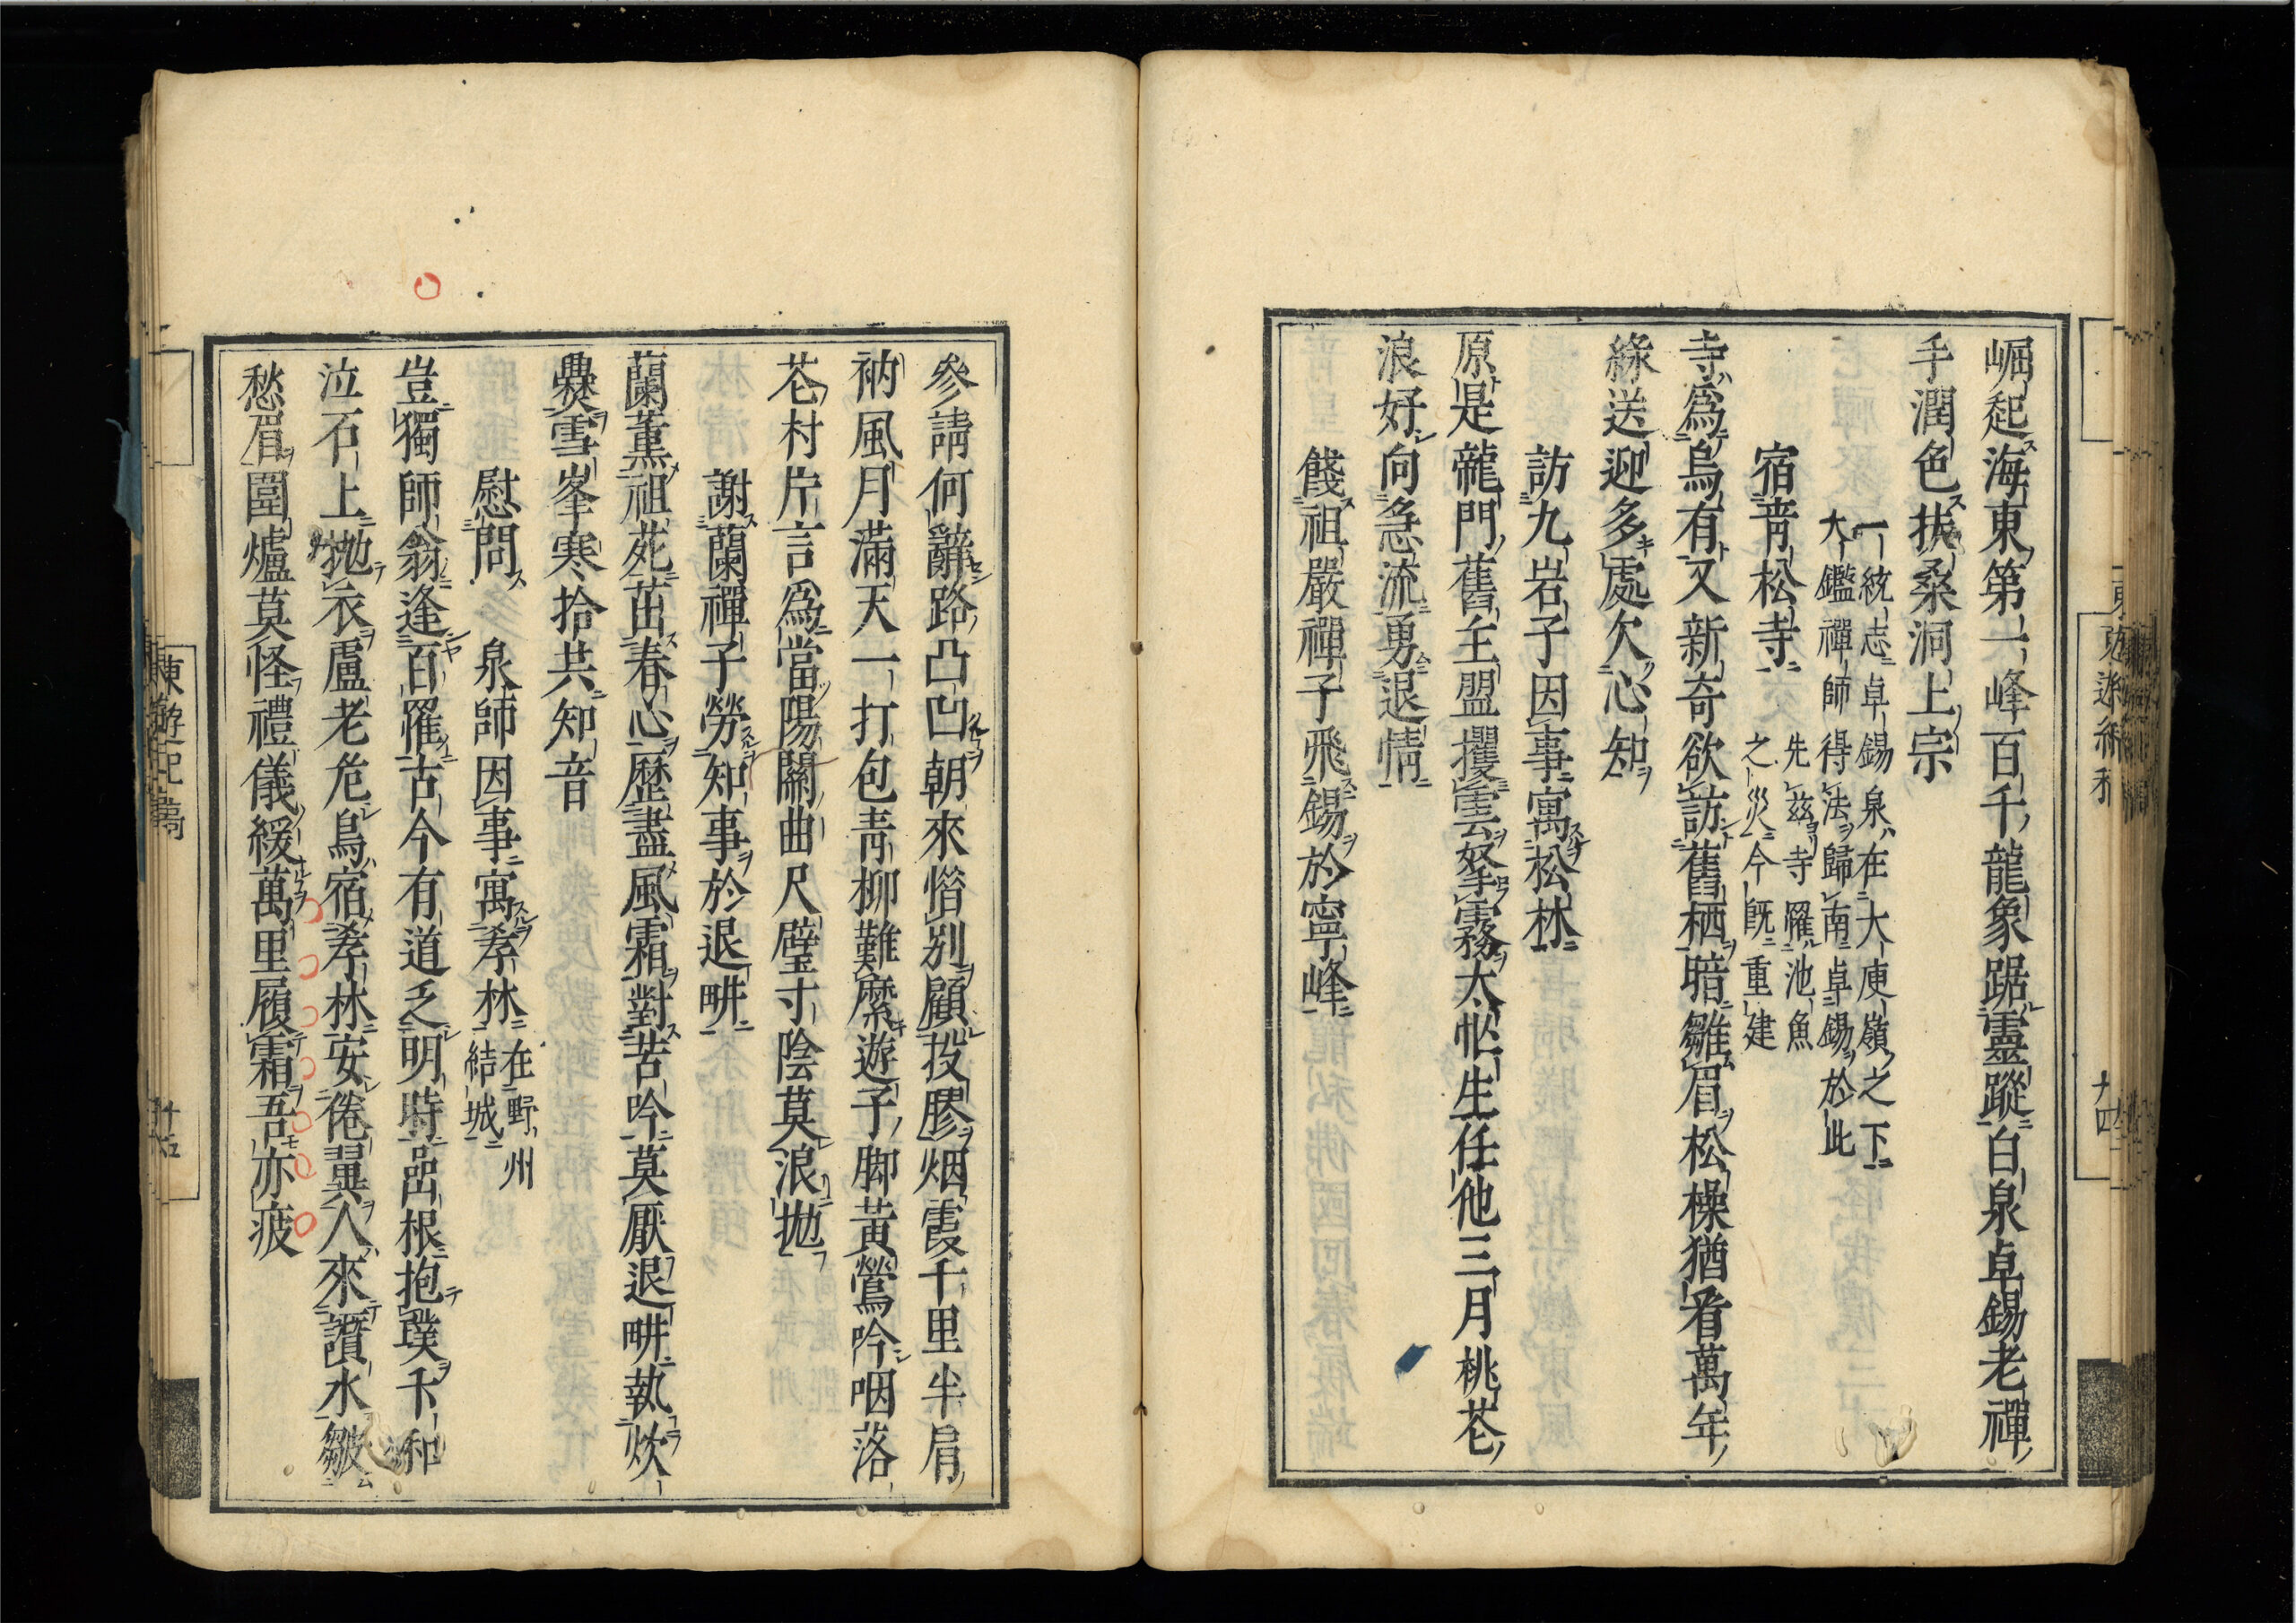 崛起海東第一峰百千龍象踞靈蹤白泉卓錫老禪
手潤色扶桑洞上宗
一統志卓錫泉在大庾嶺之下
大鑑禪師得法歸南卓錫於此
宿青松寺
先玆寺罹池魚
之災今既重建
寺爲烏有又新奇欲訪舊栖暗皺眉松操猶看萬年
緣送迎多處欠心知
訪九岩子因事寓松林
原是龍門舊主盟攫雲拏霧太忙生任他三月桃花
浪好向急流勇退情
餞祖嚴禪子飛錫於寧峰
參請何辭路凸凹朝來惜別顧投膠烟霞千里半肩
衲風月滿天一打包青柳難縻遊子脚黃鶯吟咽落
花村片言爲當陽關曲尺璧寸陰莫浪拋
謝蘭禪子勞知事於退畊
蘭薰祖苑茁春心歷盡風霜對苦吟莫厭退畊執炊
爨雪峯寒拾共知音
慰問
泉師因事寓孝林
在野州
結城
豈獨師翁逢百罹古今有道乏明時嵒根抱璞卞和
泣石上拋衣盧老危鳥宿孝林安倦翼人來讚水皺
愁眉圍爐莫怪禮儀緩萬里履霜吾亦疲
東遊紀稿
十四
十五